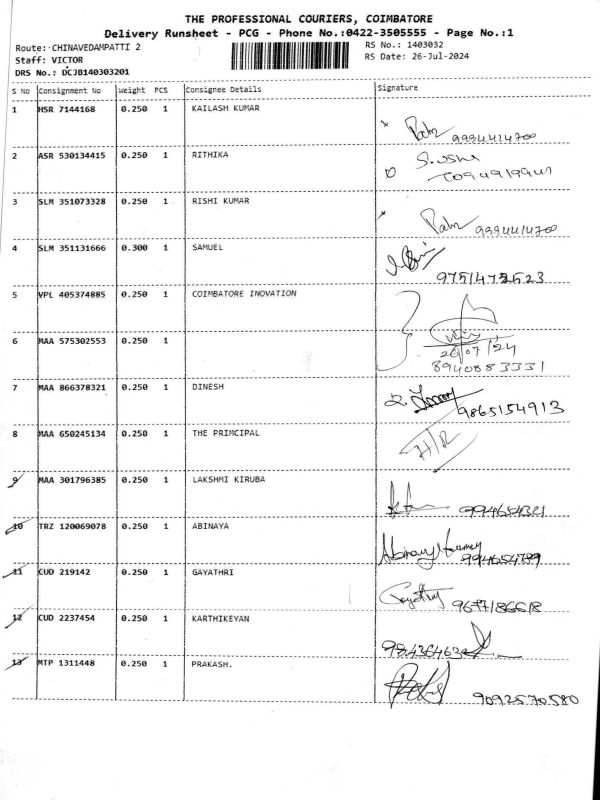 THE PROFESSIONAL COURIERS, COIMBATORE
Delivery Runsheet - PCG - Phone No.:0422-3505555 - Page No.:1
Route: CHINAVEDAMPATTI 2
RS No.: 1403032
Staff: VICTOR
RS Date: 26-Jul-2024
DRS No.: DCJB140303201
S No Consignment No Weight PCS Consignee Details Signature
1 HSR 7144168 0.250 1 KAILASH KUMAR
9994414700
2 ASR 530134415 0.250 1 RITHIKA
S. Usha
3 SLM 351073328 0.250 1 RISHI KUMAR
9994414700
4 SLM 351131666 0.300 1 SAMUEL
5 VPL 405374885 0.250 1 COIMBATORE INOVATION
6 MAA 575302553 0.250 1
26/07/24
8940883331
7 MAA 866378321 0.250 1 DINESH
9865154913
8 MAA 650245134 0.250 1 THE PRIMCIPAL
H/R
9 MAA 301796385 0.250 1 LAKSHMI KIRUBA
10 TRZ 120069078 0.250 1 ABINAYA
11 CUD 219142 0.250 1 GAYATHRI
Gayathry
12 CUD 2237454 0.250 1 KARTHIKEYAN
13 MTP 1311448 0.250 1 PRAKASH.
9092570580